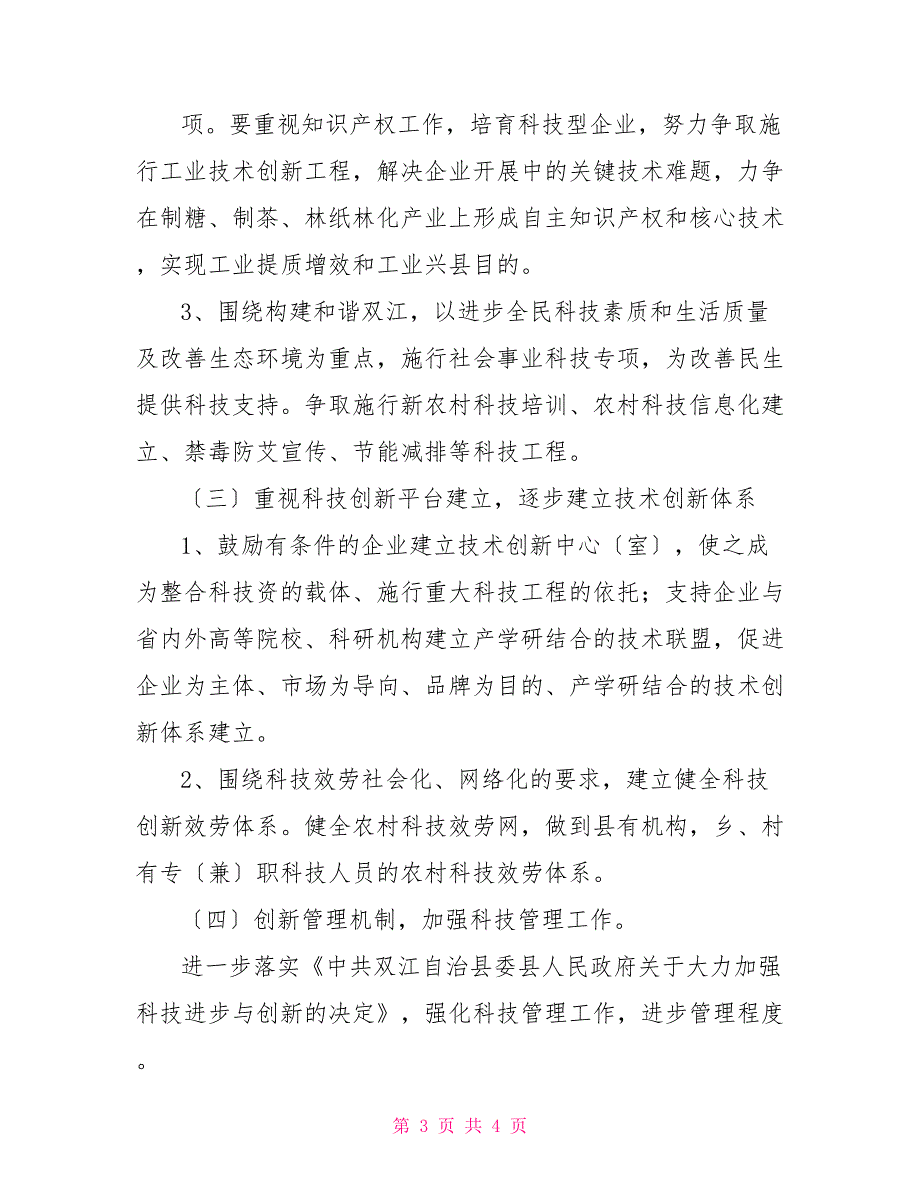 项。要重视知识产权工作，培育科技型企业，努力争取施
行工业技术创新工程，解决企业开展中的关键技术难题，力争
在制糖、制茶、林纸林化产业上形成自主知识产权和核心技术
，实现工业提质增效和工业兴县目的。
3、围绕构建和谐双江，以进步全民科技素质和生活质量
及改善生态环境为重点，施行社会事业科技专项，为改善民生
提供科技支持。争取施行新农村科技培训、农村科技信息化建
立、禁毒防艾宣传、节能减排等科技工程。
〔三〕重视科技创新平台建立，逐步建立技术创新体系
1、鼓励有条件的企业建立技术创新中心〔室〕，使之成
为整合科技资的载体、施行重大科技工程的依托；支持企业与
省内外高等院校、科研机构建立产学研结合的技术联盟，促进
企业为主体、市场为导向、品牌为目的、产学研结合的技术创
新体系建立。
2、围绕科技效劳社会化、网络化的要求，建立健全科技
创新效劳体系。健全农村科技效劳网，做到县有机构，乡、村
有专〔兼〕职科技人员的农村科技效劳体系。
〔四〕创新管理机制，加强科技管理工作。
进一步落实《中共双江自治县委县人民政府关于大力加强
科技进步与创新的决定》，强化科技管理工作，进步管理程度
。
第 3 页 共 4 页